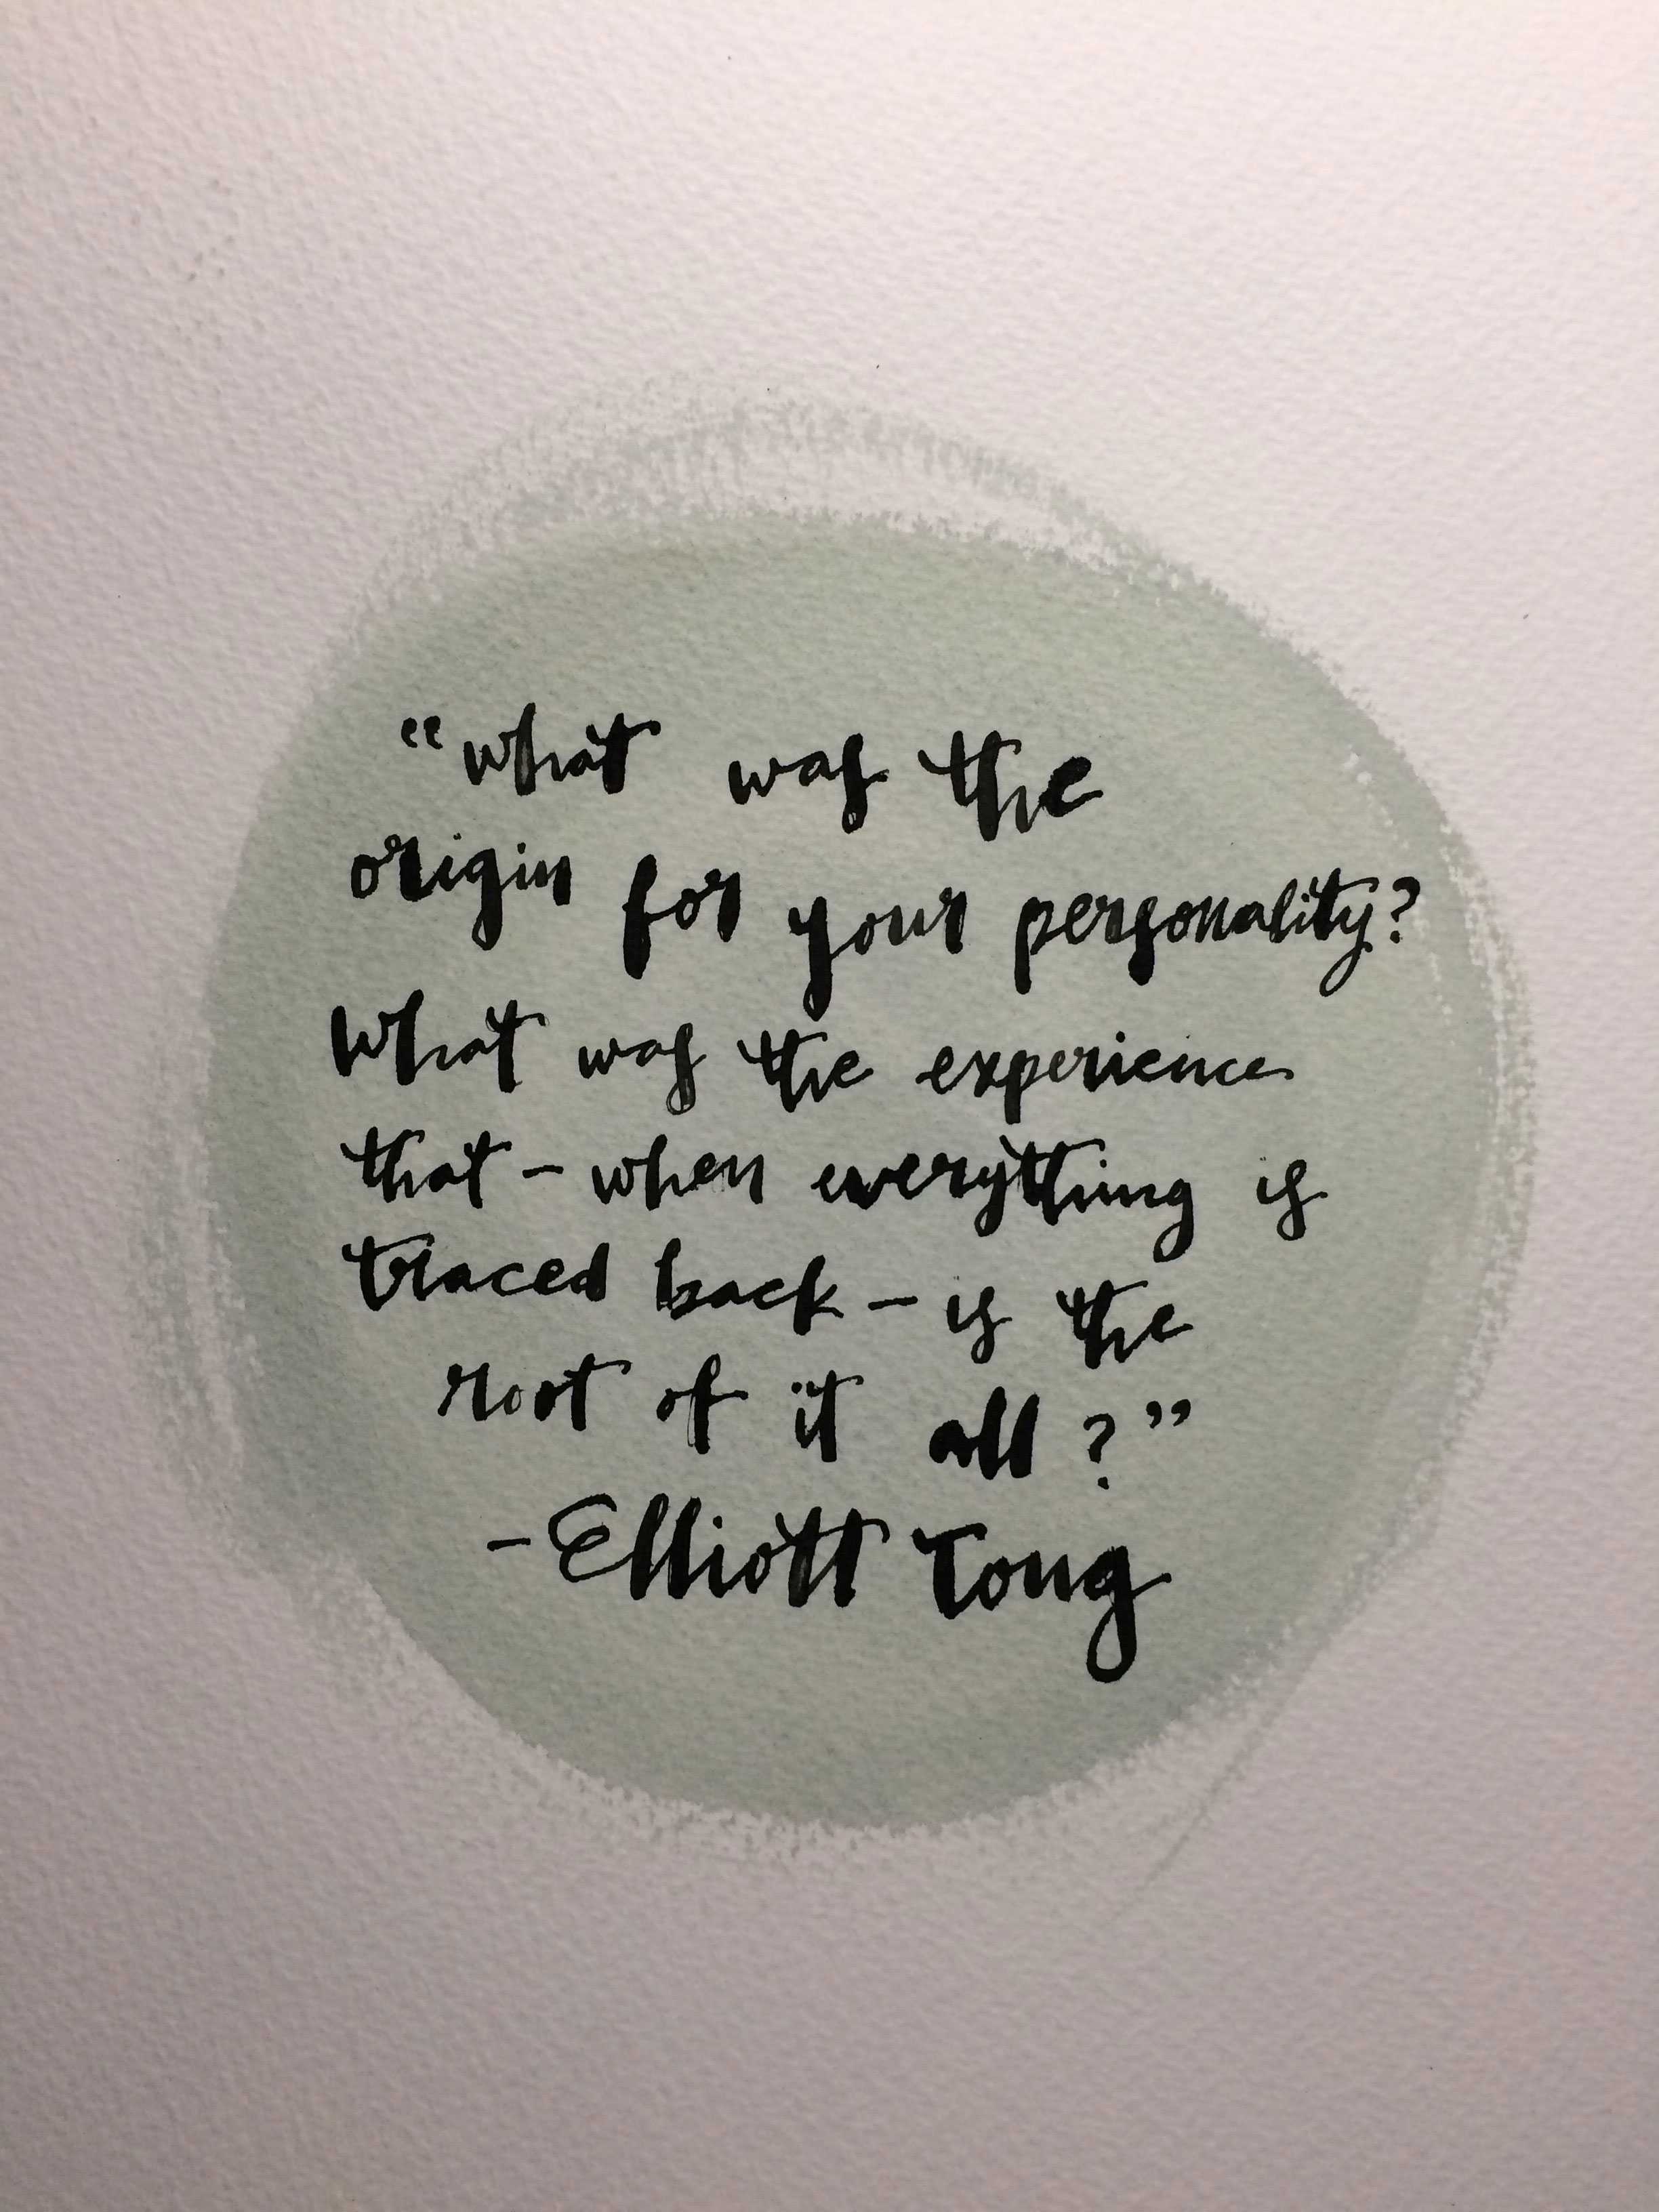 “what was the
origin for your personality?
What was the experience
that - when everything is
traced back - is the
root of it all?”
- Elliott Tong